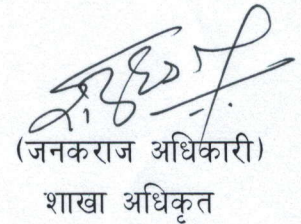 (जनकराज अधिकारी)
शाखा अधिकृत